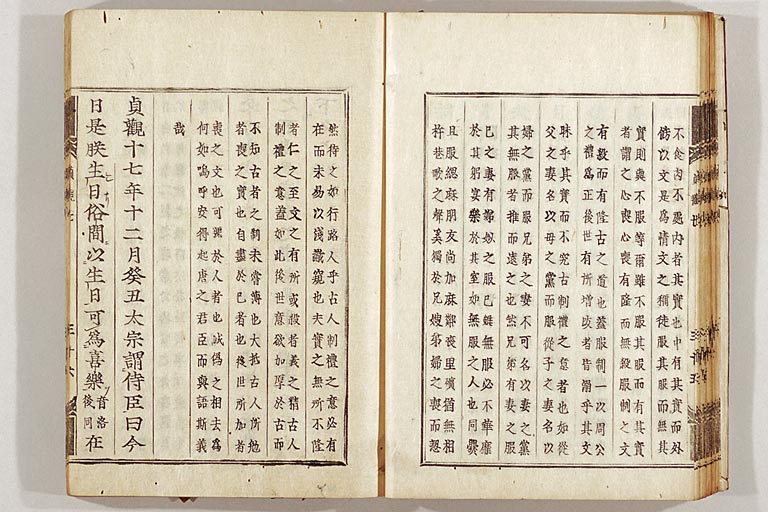 不食肉不處內者其實也中有其實而外
飾以文是爲情文之稱徒服其服而無其
實則與不服等爾雖不服其服而有其實
者謂之心喪心喪有隆而無殺服制之文
有殺而有隆古之道也蓋服制一次周公
禮爲正後世有所增者皆溺乎其文
昧乎其實而不究古制禮之意者也如從
父之妻名以母之黨而服從子之妻名以
婦之黨而服兄弟之妻不可名以妻之黨
其無服者推而遠之也然兄弟有妻之服
己之妻有娣姒之服己雖無服必不華靡
其躬宴樂於其室如無服之人也同爨
且服緦麻朋友尚加麻鄰喪里殯猶無相
杵巷歌之聲奚獨於兄嫂弟婦之喪而恝
然待之如行路人乎古人制禮之意必有
在而未易以淺識窺也夫實之無所不隆
者仁之至文之有所或殺者義之精古人
制禮之意蓋如此後世意欲加厚於古而
不知古者之制未嘗薄也大抵古人所勉
者喪之實也自盡於己者也後世所加者
喪之文也可號於人者也誠僞之相去爲
何如嗚呼安得起唐之君臣而與語斯義
哉
貞觀十七年十二月癸丑太宗謂侍臣曰今
日是朕生日俗間以生日可爲喜樂音洛後同在